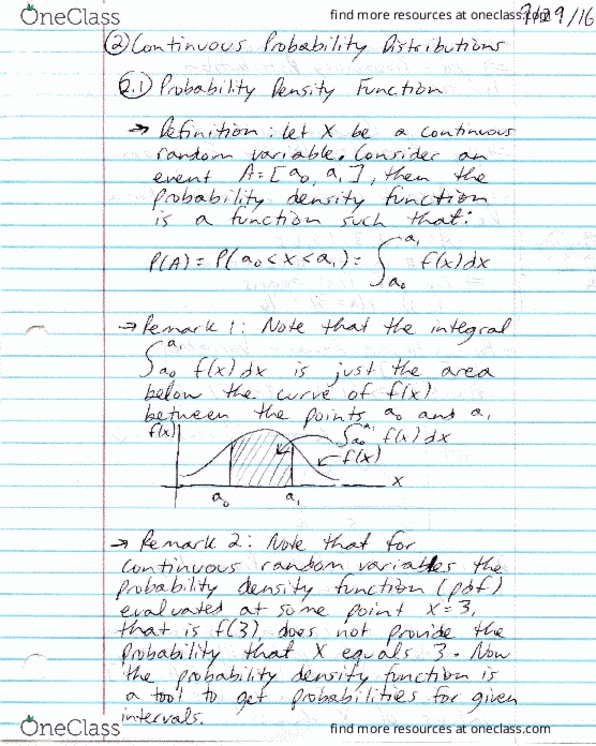 OneClass
find more resources at oneclass.com
9/29/16
② Continuous Probability Distributions
2.1 Probability Density Function
→ Definition: let X be a continuous
random variable. Consider an
event A=[a₀, a₁], then the
probability density function
is a function such that:
P(A) = P(a₀<x<a₁) = ∫ₐ₀^a₁ f(x)dx
→ Remark 1: Note that the integral
∫ₐ₀^a₁ f(x)dx is just the area
below the curve of f(x)
between the points a₀ and a₁
f(x)
∫ₐ₀^a₁ f(x)dx
f(x)
x
a₀ a₁
→ Remark 2: Note that for
continuous random variables the
probability density function (pdf)
evaluated at some point x=3,
that is f(3), does not provide the
probability that X equals 3. Now
the probability density function is
a tool to get probabilities for given
intervals.
OneClass
find more resources at oneclass.com